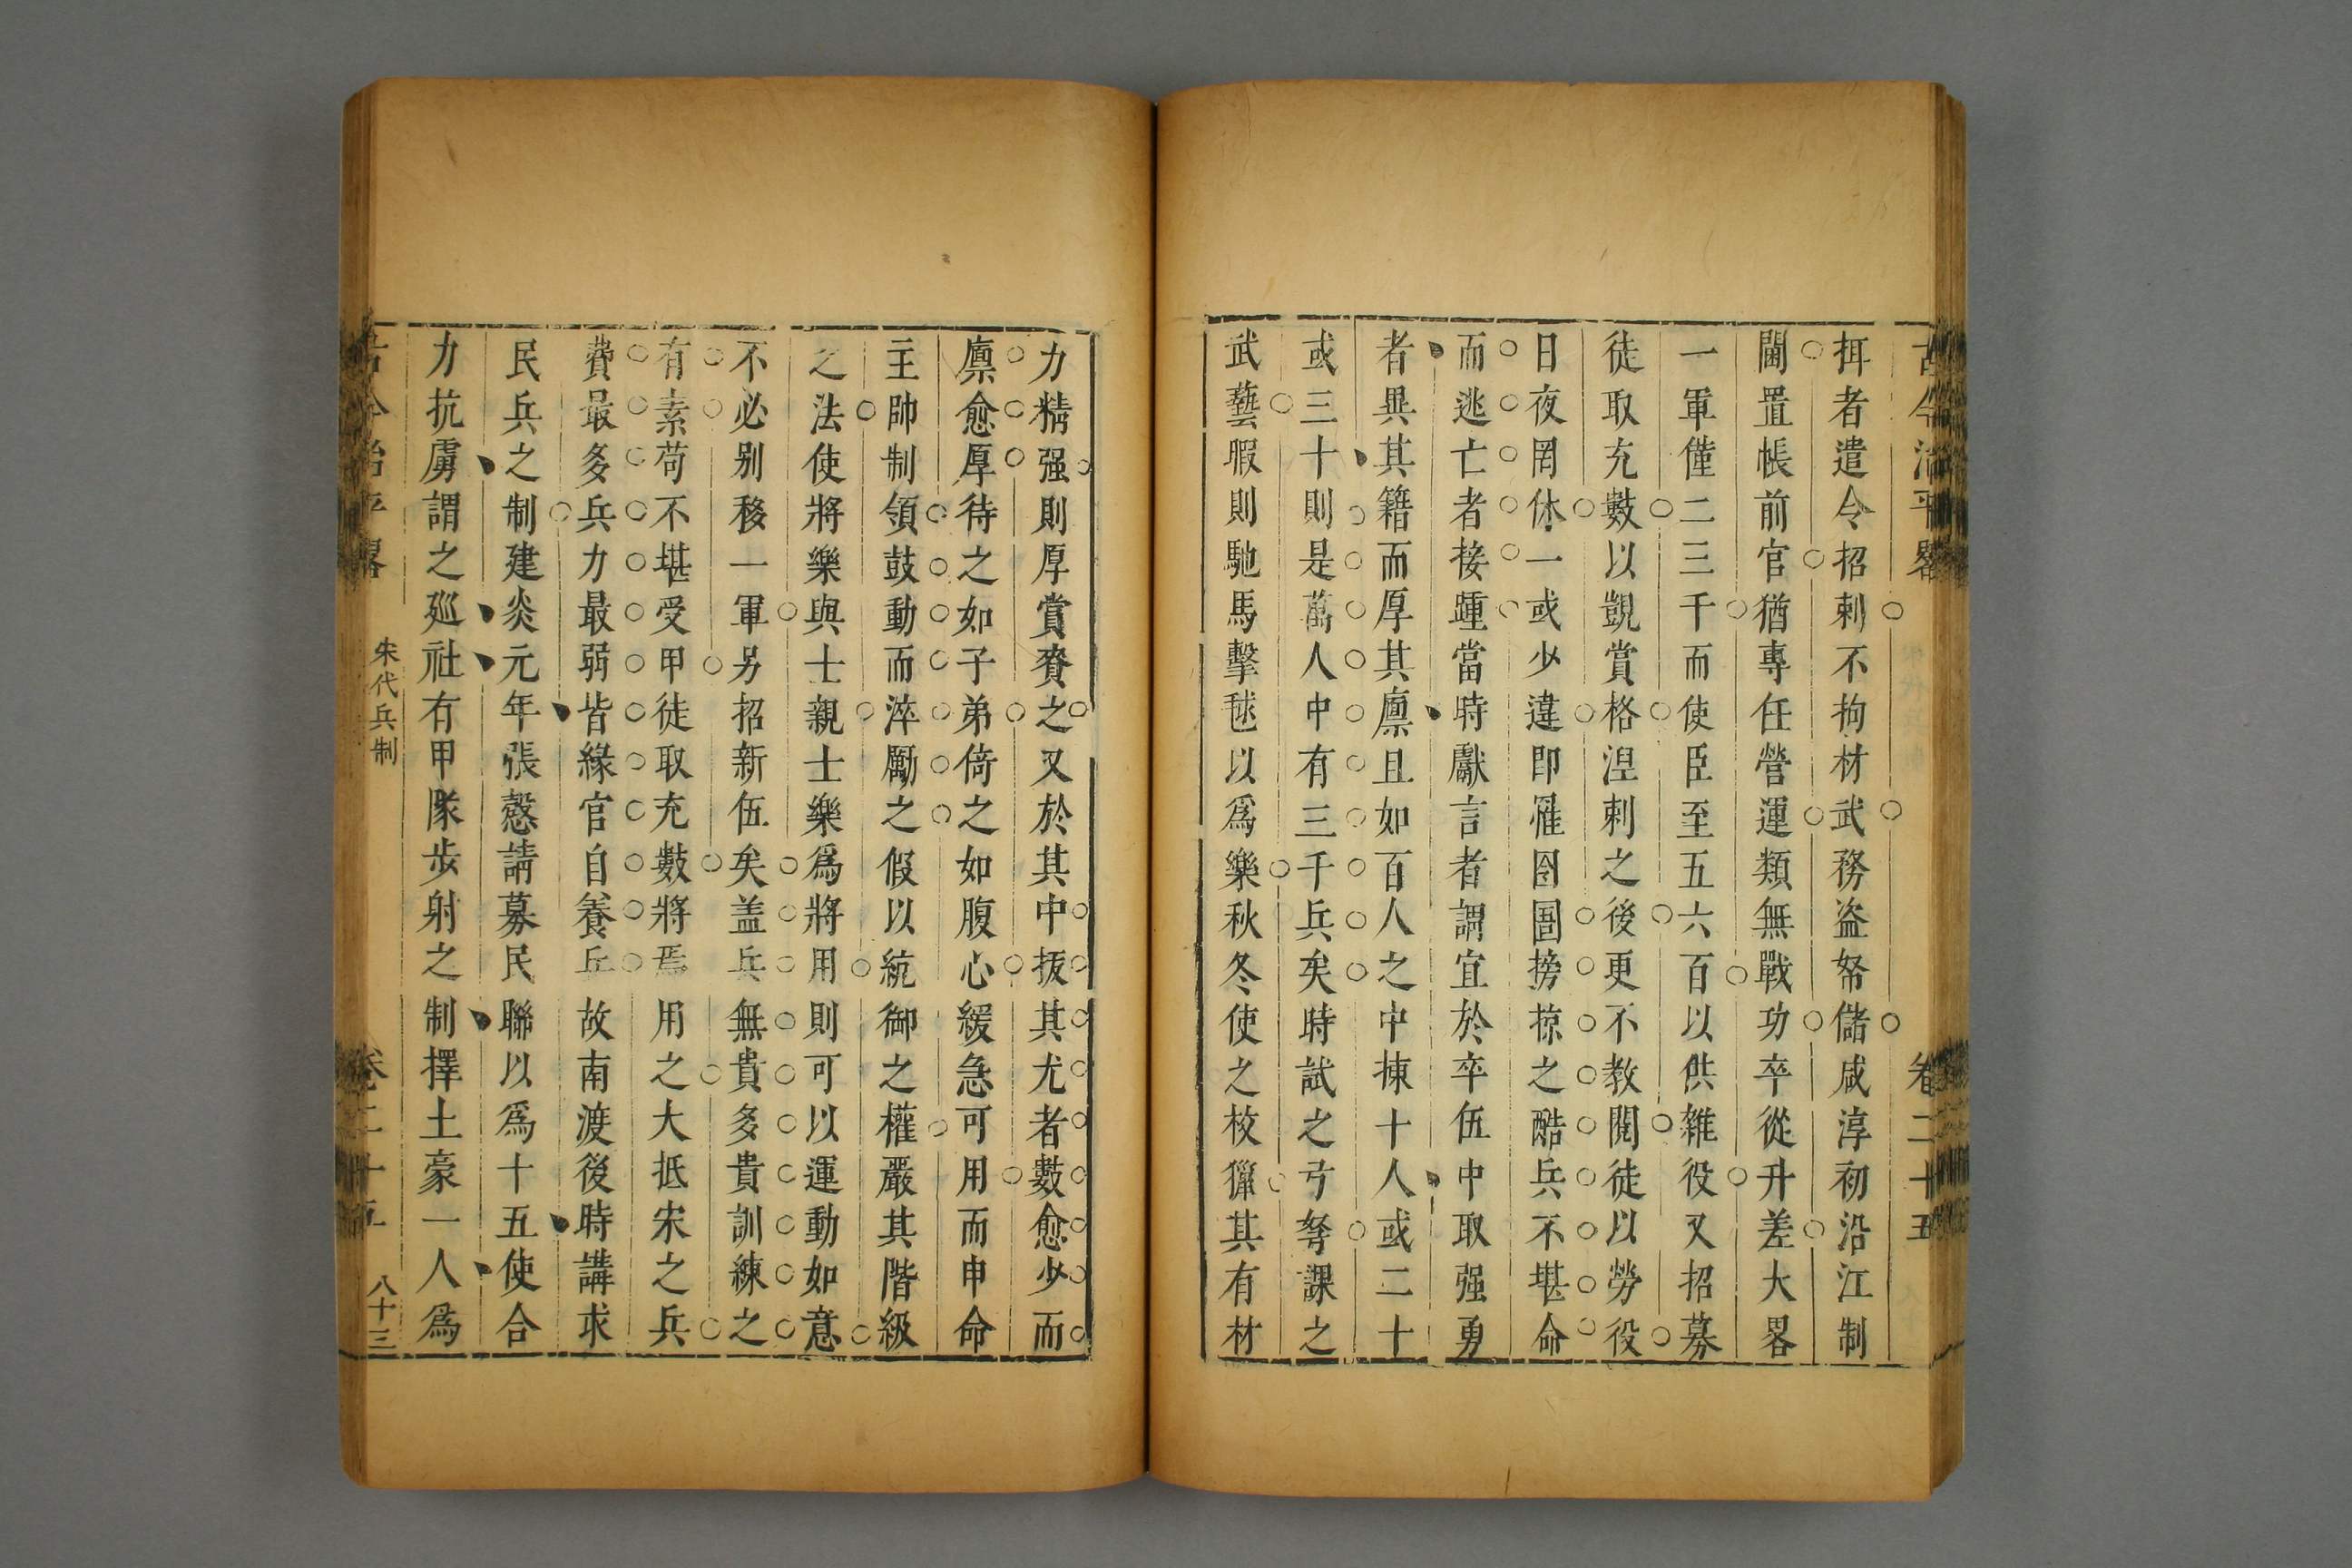 古今治平畧 卷二十五
挕者遣令招刺不拘材武務盗帑儲咸淳初沿江制
閫置帳前官猶專任營運類無戰功卒從升差大畧
一軍僅二三千而使臣至五六百以供雜役又招募
徒取充數以覬賞格湼刺之後更不教閱徒以勞役
日夜罔休一或少違即罹囹圄搒掠之酷兵不堪命
而逃亡者接踵當時獻言者謂宜於卒伍中取强勇
者異其籍而厚其廪且如百人之中揀十人或二十
或三十則是萬人中有三千兵矣時試之弓弩課之
武藝暇則馳馬擊毬以爲樂秋冬使之校獵其有材
力精强則厚賞賚之又於其中拔其尤者數愈少而
廪愈厚待之如子弟倚之如腹心緩急可用而申命
主帥制領鼓動而淬勵之假以統御之權嚴其階級
之法使將樂與士親士樂爲將用則可以運動如意
不必别移一軍另招新伍矣盖兵無貴多貴訓練之
有素苟不堪受甲徒取充數將焉用之大抵宋之兵
費最多兵力最弱皆緣官自養兵故南渡後時講求
民兵之制建炎元年張慤請募民聯以爲十五使合
力抗虜謂之廵社有甲隊步射之制擇土豪一人爲
古今治平畧 朱代兵制 卷二十五 八十三